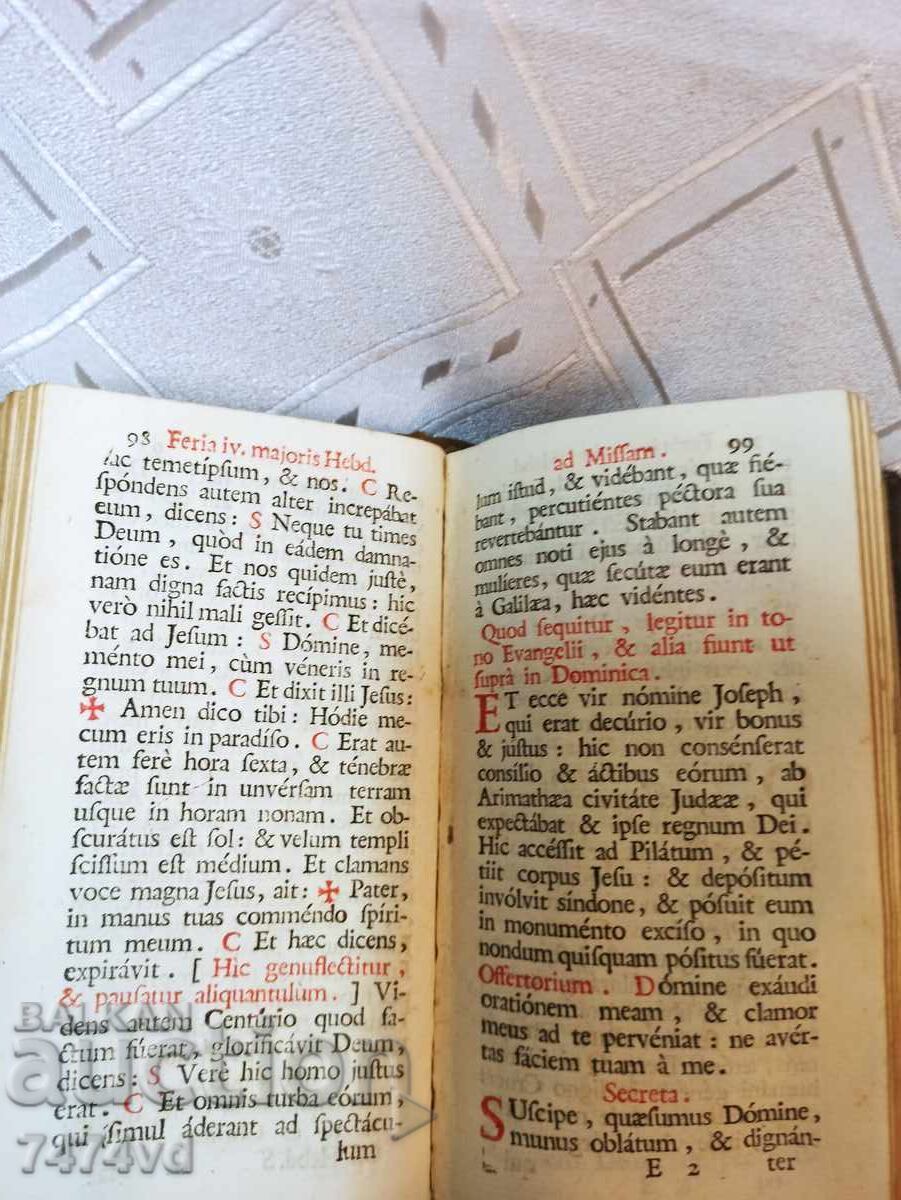 98 Feria iv. majoris Hebd.
ſac temetípſum, & nos. C Re-
ſpóndens autem alter increpábat
eum, dicens: S Neque tu times
Deum, quòd in eádem damna-
tióne es. Et nos quidem juſtè,
nam digna factis recípimus: hic
verò nihil mali geſſit. C Et dicé-
bat ad Jeſum: S Dómine, me-
ménto mei, cùm véneris in re-
gnum tuum. C Et dixit illi Jeſus:
✠ Amen dico tibi: Hódie me-
cum eris in paradíſo. C Erat au-
tem ferè hora ſexta, & ténebræ
factæ ſunt in unvérſam terram
uſque in horam nonam. Et ob-
ſcurátus eſt ſol: & velum templi
ſciſſum eſt médium. Et clamans
voce magna Jeſus, ait: ✠ Pater,
in manus tuas comméndo ſpíri-
tum meum. C Et hæc dicens,
expirávit. [ Hic genuflectitur,
& pauſatur aliquantulùm. ] Vi-
dens autem Centúrio quod fa-
ctum fúerat, glorificávit Deum,
dicens: S Verè hic homo juſtus
erat. C Et omnis turba eórum,
qui ſimul áderant ad ſpectácu-
lum
ad Miſſam. 99
lum iſtud, & vidébant, quæ fié-
bant, percutiéntes péctora ſua
revertebántur. Stabant autem
omnes noti ejus à longè, &
mulíeres, quæ ſecútæ eum erant
à Galilæa, hæc vidéntes.
Quod ſequitur, legitur in to-
no Evangelii, & alia fiunt ut
ſuprà in Dominica.
ET ecce vir nómine Joſeph,
qui erat decúrio, vir bonus
& juſtus: hic non conſénſerat
conſílio & áctibus eórum, ab
Arimathæa civitáte Judææ, qui
expectábat & ipſe regnum Dei.
Hic accéſſit ad Pilátum, & pé-
tiit corpus Jeſu: & depóſitum
invólvit síndone, & póſuit eum
in monuménto excíſo, in quo
nondum quiſquam póſitus fúerat.
Offertorium. Dómine exáudi
oratiónem meam, & clamor
meus ad te pervéniat: ne avér-
tas fáciem tuam à me.
Secreta.
SUſcipe, quæſumus Dómine,
munus oblátum, & dignán-
E 2 ter
BALKAN
auction
7474vd